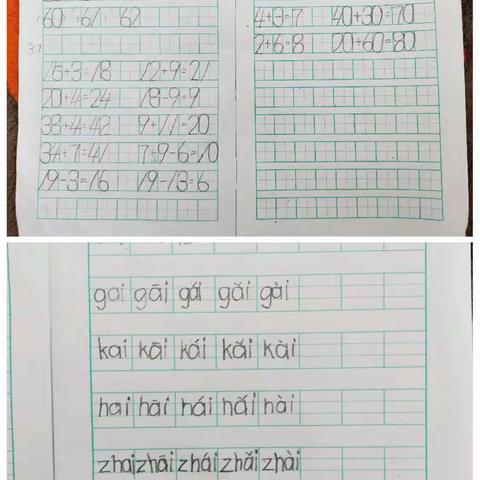 60 61 62
15+3=18 12+9=21
20+4=24 18-9=9
38+4=42 9+11=20
34+7=41 7+9-6=10
19-3=16 19-13=6
4+3=7 40+30=70
2+6=8 20+60=80
gai gāi gái gǎi gài
kai kāi kái kǎi kài
hai hāi hái hǎi hài
zhai zhāi zhái zhǎi zhài